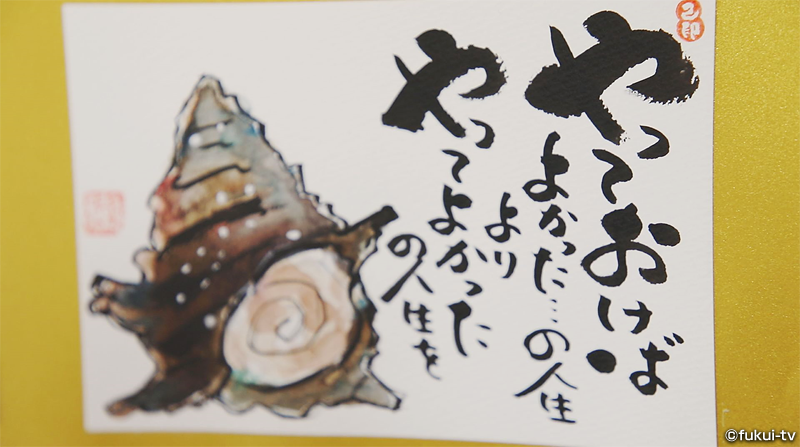 やっておけば
よかった…の人生
より
やってよかった
の人生を
©fukui-tv